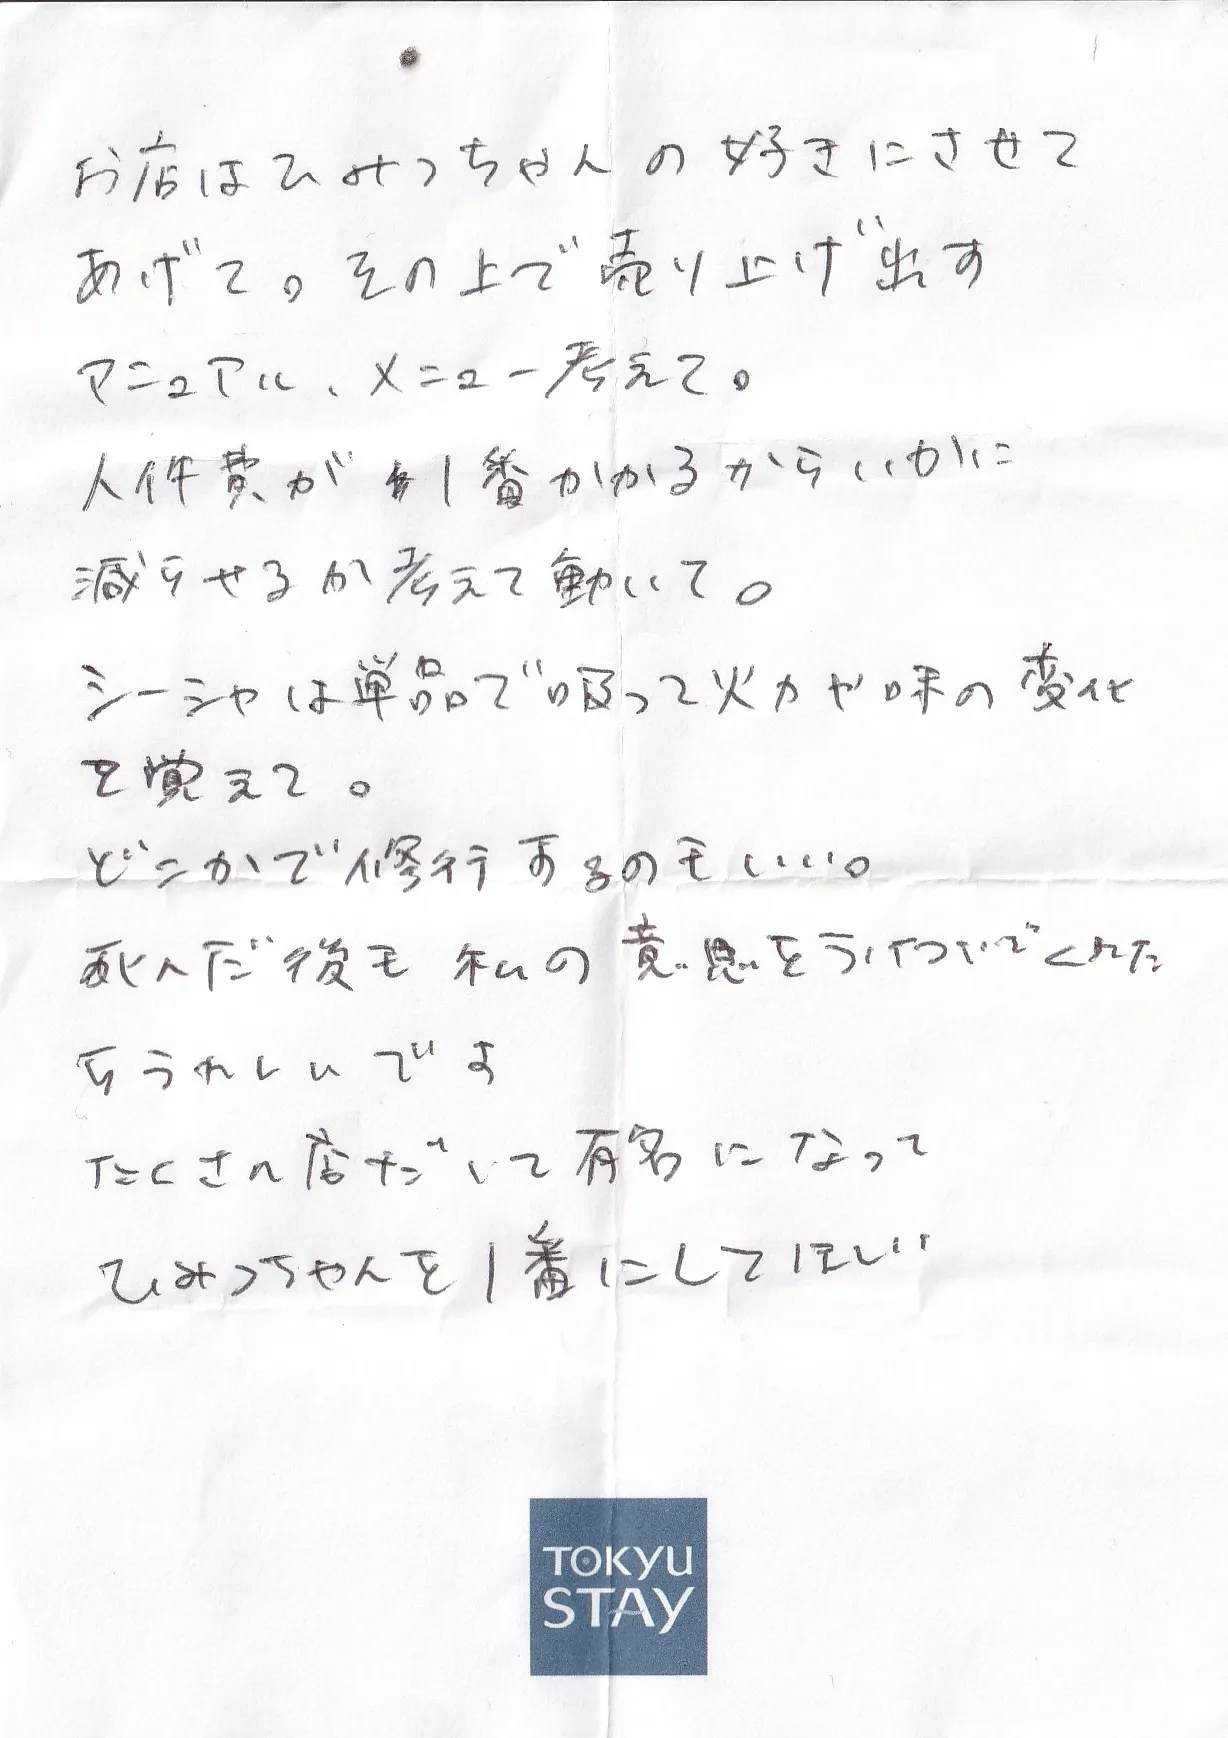 お店はひみつちゃんの好きにさせて
あげて。その上で売り上げ出す
マニュアル、メニュー考えて。
人件費が1番かかるからいかに
減らせるか考えて動いて。
シーシャは単品で吸って火力や味の変化
を覚えて。
どこかで修行するのもいい。
死んだ後も私の意思をうけついでくれた
らうれしいです
たくさん店だして有名になって
ひみつちゃんを1番にしてほしい
TOKYU
STAY